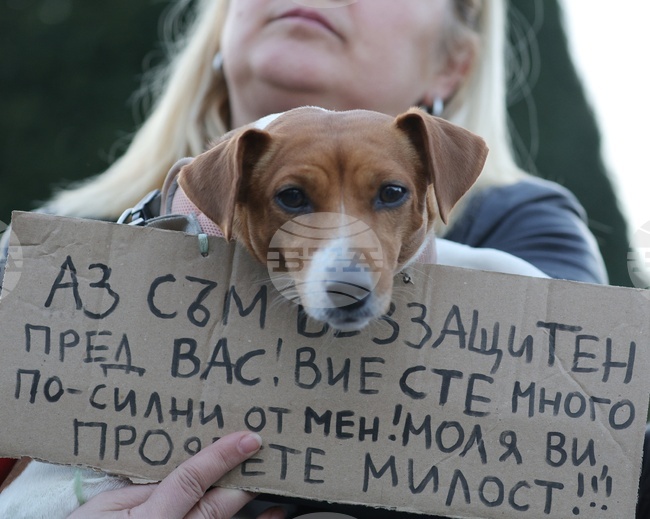 АЗ СЪМ БЕЗЗАЩИТЕН
ПРЕД ВАС! ВИЕ СТЕ МНОГО
ПО-СИЛНИ ОТ МЕН! МОЛЯ ВИ,
ПРОЯВЕТЕ МИЛОСТ!!!
БТА